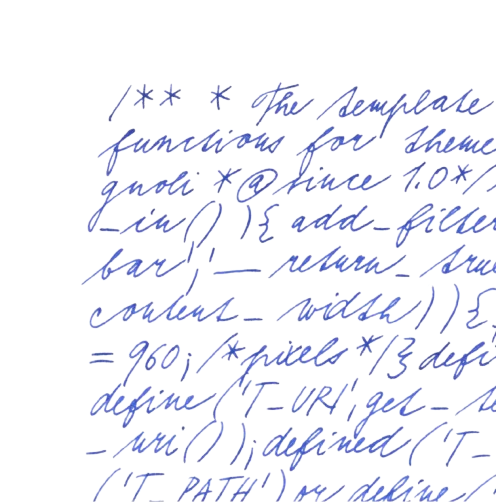 /** * The template
functions for theme
gnoli *@since 1.0*/
_in() ){ add_filter
bar','__return_true
content_width)){
=960;/*pixels*/}defi
define('T_URI',get_te
_uri());defined('T_
('T_PATH')or define('